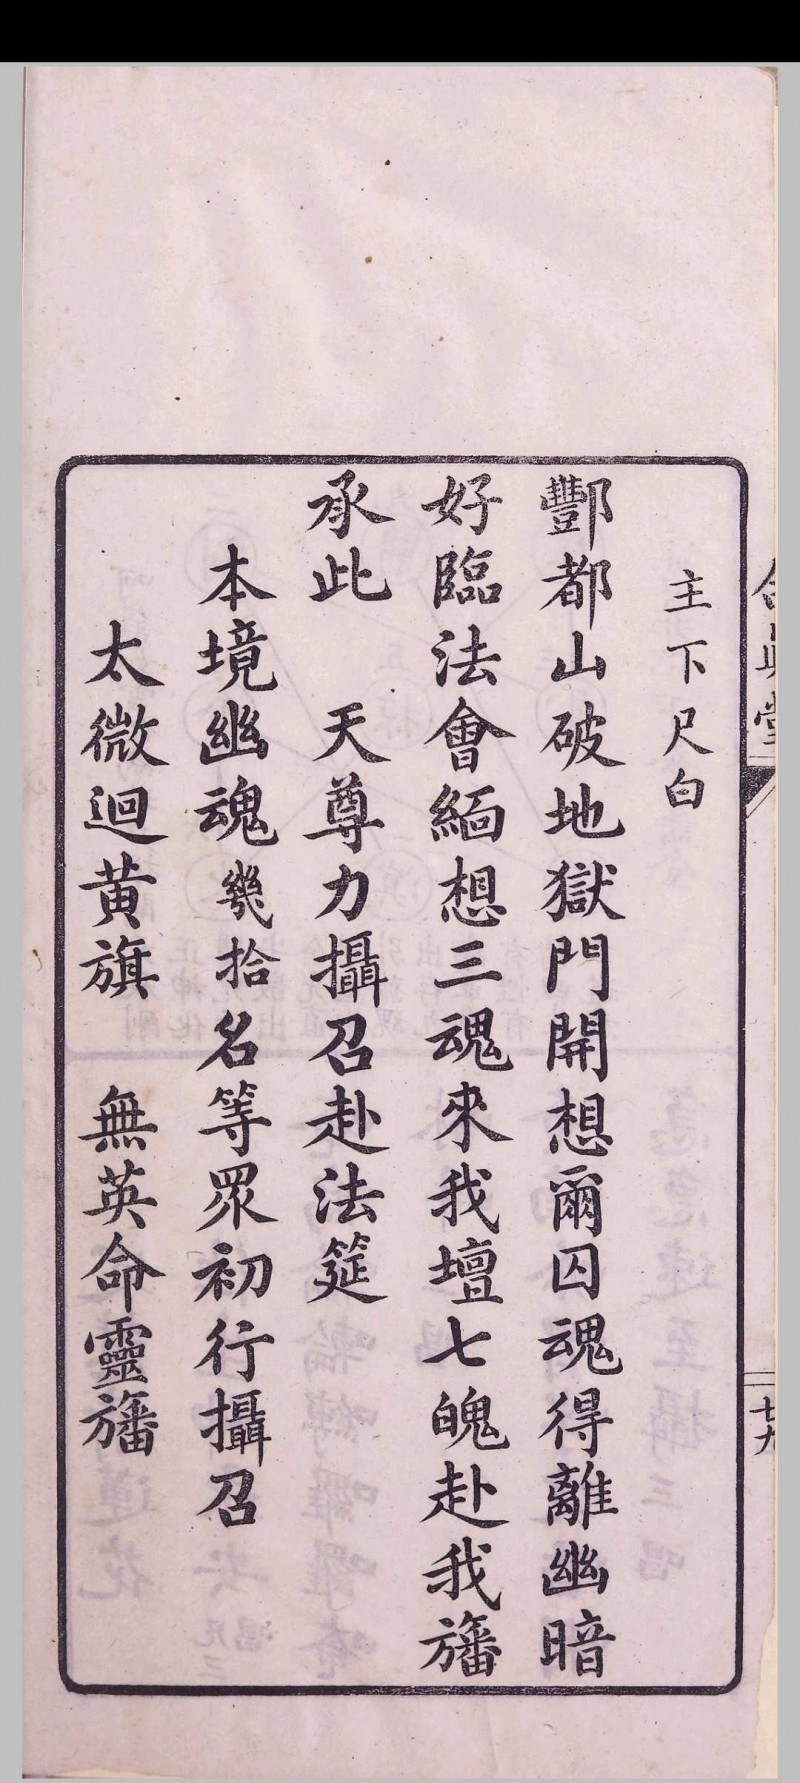 主下尺白
酆都山破地獄門開想爾囚魂得離幽暗
好臨法會緬想三魂來我壇七魄赴我旛
承此　天尊力攝召赴法筵
本境幽魂幾拾名等眾初行攝召
太微迴黃旗　無英命靈旛
七九